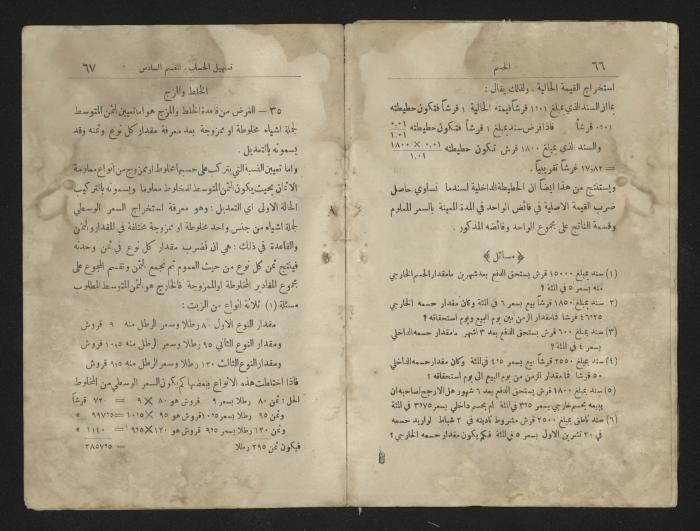 ٦٦ الحسم
استخراج القيمة الحالية . ولذلك يقال :
بما ان السند الذي بمبلغ ١٬٠١ قرشاً قيمته الحالية ١ قرشاً فتكون حطيطته
٠٬٠١ قرشاً فاذا فرض سند بمبلغ ١ قرشاً فتكون حطيطته ٠٬٠١ / ١٬٠١
والسند الذي بمبلغ ١٨٠٠ قرش تكون حطيطته ٠٬٠١ × ١٨٠٠ / ١٬٠١
= ١٧٬٨٢ غرشاً تقريبياً .
ويستنتج من هذا ايضاً ان الحطيطة الداخلية لسند ما تساوي حاصل
ضرب القيمة الاصلية في فائض الواحد في المدة المعينة بالسعر المعلوم
وقسمة الناتج على مجموع الواحد وفائضه المذكور .
﴿ مسائل ﴾
(١) سند بمبلغ ١٥٠٠٠ قرش يستحق الدفع بعد شهرين ما مقدار الحسم الخارجي
منه بسعر ٥ في المئة ؟
(٢) سند بمبلغ ١٨٥٠ قرشاً بيع بسعر ٦ في المئة وكان مقدار حسمه الخارجي
٤٦٬٢٥ قرشاً فما مقدار الزمن بين يوم البيع ويوم استحقاقه ؟
(٣) سند بمبلغ ٦٠٠ قرش يستحق الدفع بعد ٣ اشهر ما مقدار حسمه الداخلي
بسعر ٤ في المئة ؟
(٤) سند بمبلغ ٢٥٥٠ قرشاً بيع بسعر ٤٬٥ في المئة وكان مقدار حسمه الداخلي
٥٠ قرشاً فما مقدار الزمن من يوم البيع الى يوم استحقاقه ؟
(٥) سند بمبلغ ١٨٠٠ قرش يستحق الدفع بعد ٦ شهور هل الارجح لصاحبه ان
يبيعه بحسم خارجي بسعر ٣٬٥ في المئة ام بحسم داخلي بسعر ٣٬٧٥ في المئة
(٦) سند ناطق بمبلغ ٢٥٠٠ قرش مشروط تأديته في ٢ شباط لو اريد حسمه
في ٢٠ تشرين الاول بسعر ٥ في المئة فكم يكون مقدار حسمه الخارجي ؟
تسهيل الحساب . القسم السادس ٦٧
الخلط والمزج
٣٥ — الغرض من قاعدة الخلط والمزج هو اما تعيين الثمن المتوسط
لجملة اشياء مخلوطة او ممزوجة بعد معرفة مقدار كل نوع وثمنه وقد
يسمونه بالتعديل .
واما تعيين النسبة التي يتركب على حسبها مخلوط او ممزوج من انواع معلومة
الاثمان بحيث يكون الثمن المتوسط للمخلوط معلوما ويسمونه بالتركيب
الحالة الاولى اي التعديل : وهو معرفة استخراج السعر الوسطي
لجملة اشياء من جنس واحد مخلوطة او ممزوجة مختلفة في المقدار والثمن
والقاعدة في ذلك : هي ان تضرب مقدار كل نوع في ثمن وحدته
فينتج ثمن كل نوع من حيث العموم ثم تجمع الثمن وتقسم المجموع على
مجموع المقادير المخلوطة او الممزوجة فالخارج هو الثمن المتوسط المطلوب
مسئلة (١) ثلاثة انواع من الزيت :
مقدار النوع الاول ٨٠ رطلا وسعر الرطل منه ٩ قروش
ومقدار النوع الثاني ٩٥ رطلا وسعر الرطل منه ١٠٬٥ قروش
ومقدار النوع الثالث ١٢٠ رطلا وسعر الرطل منه ٩٬٥ قروش
فاذا اختلطت هذه الانواع ببعضها كم يكون السعر الوسطي من المخلوط
الحل : ثمن ٨٠ رطلا بسعر ٩ قروش هو ٨٠ × ٩ = ٧٢٠ قرشاً
وثمن ٩٥ رطلا بسعر ١٠٬٥ قروش هو ٩٥ × ١٠٬٥ = ٩٩٧٬٥ »
وثمن ١٢٠ رطلا بسعر ٩٬٥ قروش هو ١٢٠ × ٩٬٥ = ١١٤٠ »
فيكون ثمن ٢٩٥ رطلا = ٢٨٥٧٬٥